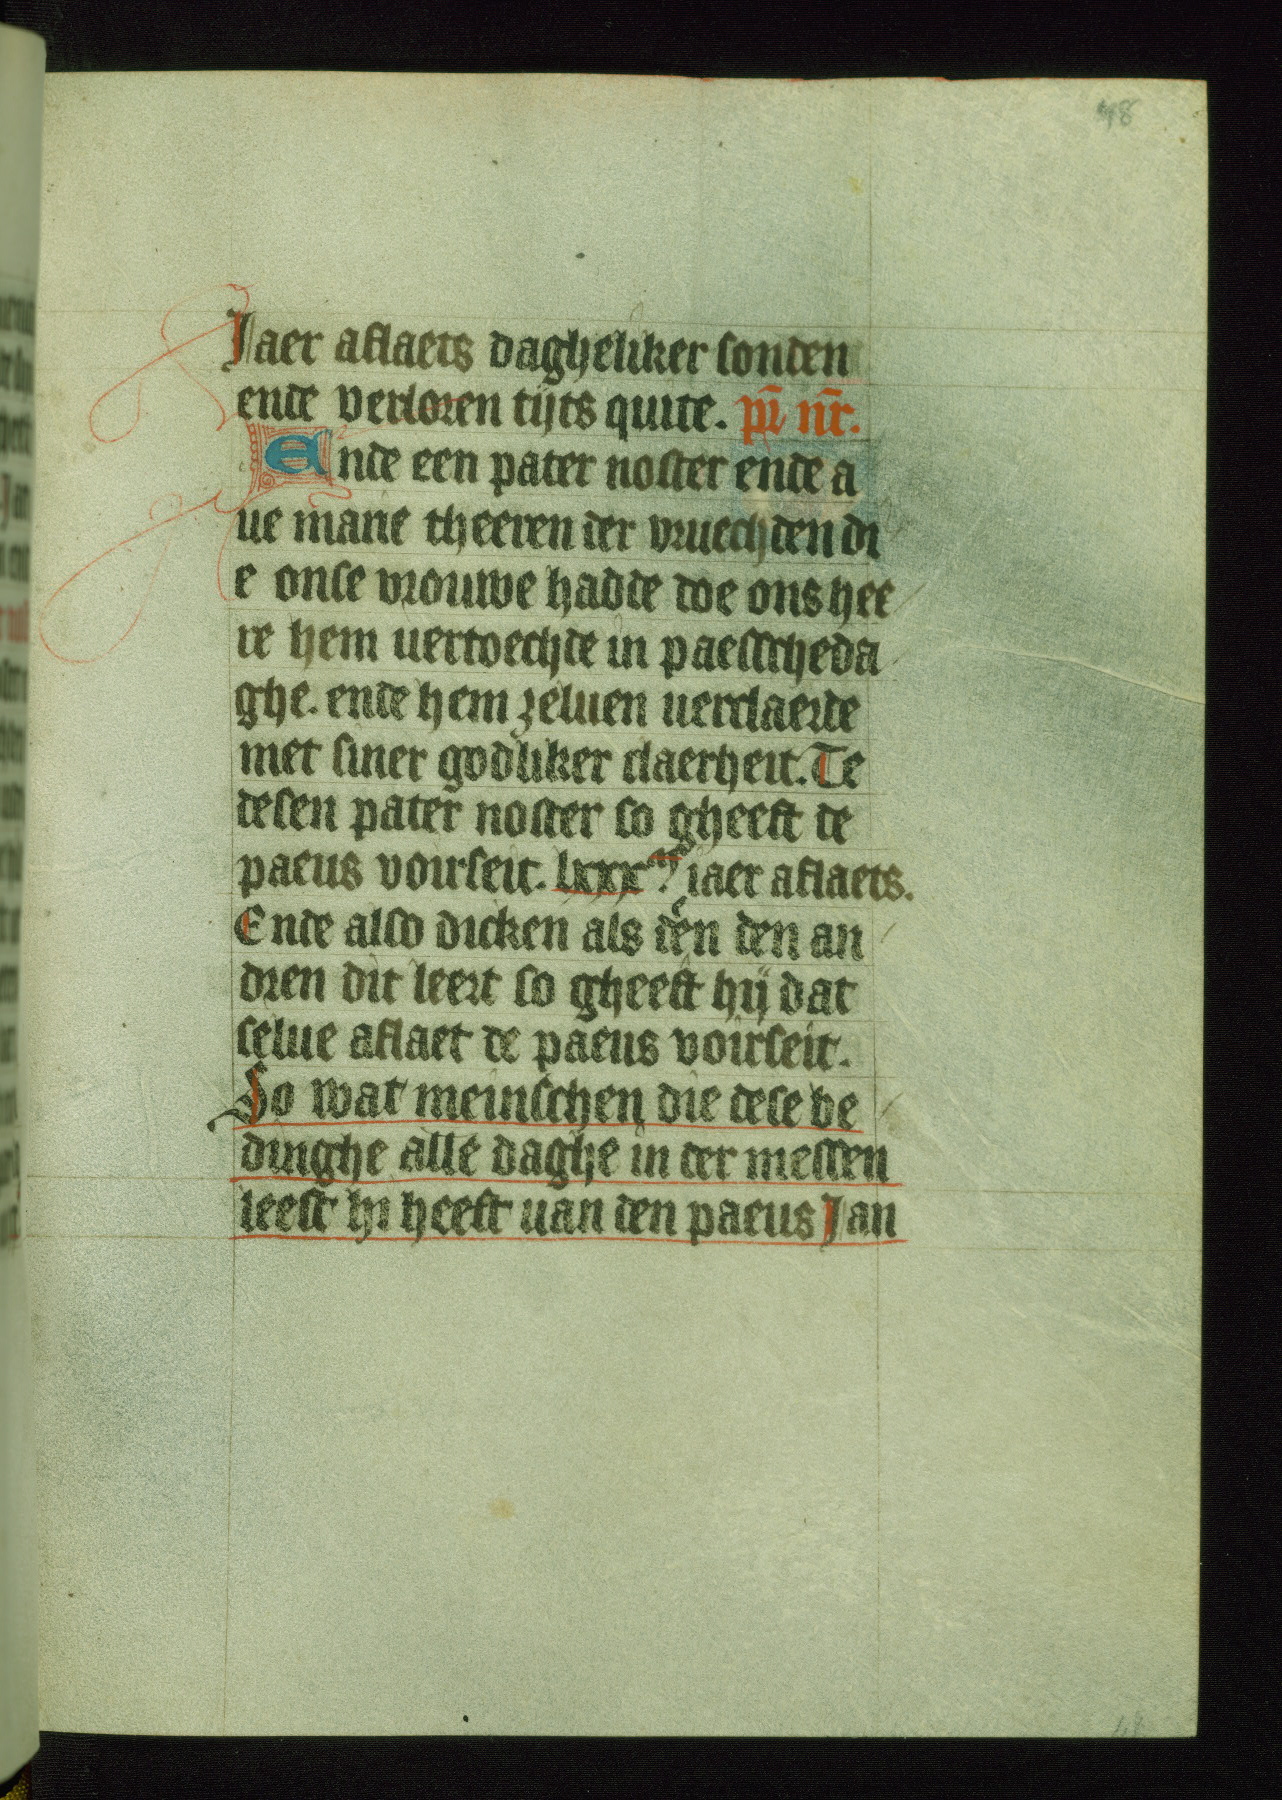 48
Jaer aflaets dagheliker sonden
ende verloren tijts quite. pr̄ nr̄.
Ende een pater noster ende a
ue marie theeren der vruechden di
e onse vrouwe hadde doe ons hee
re hem uertoechde in paesscheda
ghe. ende hem zeluen uerclaerde
met siner godliker claerheit. Te
desen pater noster so gheeft de
paeus voirseit. lxxxm jaer aflaets.
Ende also dicken als dēn den an
dren dit leert so gheeft hij dat
selue aflaet de paeus voirseit.
So wat meinschen die dese be
dinghe alle daghe in der messen
leest hi heeft uan den paeus Jan